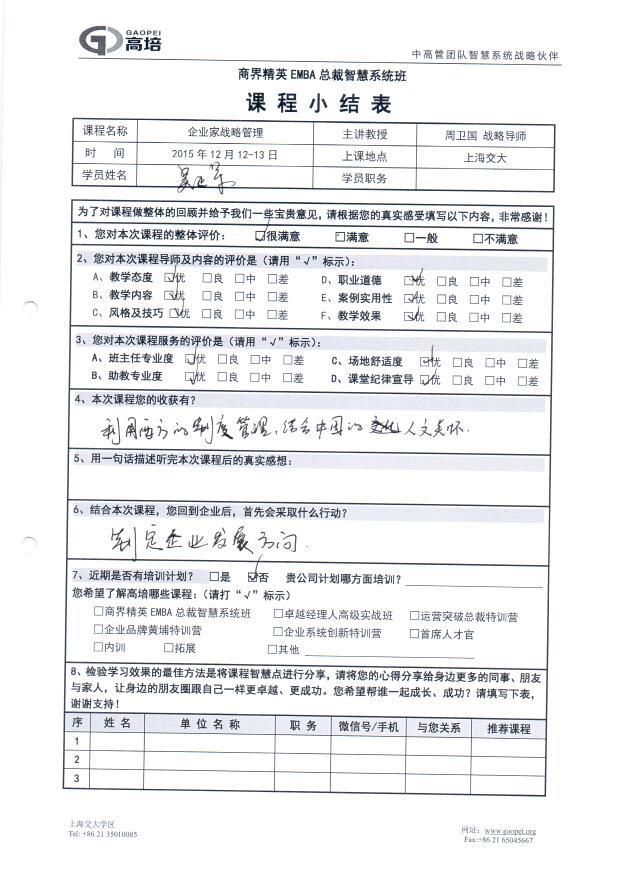 GAOPEI
高培
中高管团队智慧系统战略伙伴
商界精英 EMBA 总裁智慧系统班
课程小结表
课程名称 企业家战略管理 主讲教授 周卫国 战略导师
时 间 2015 年 12 月 12-13 日 上课地点 上海交大
学员姓名 学员职务
为了对课程做整体的回顾并给予我们一些宝贵意见，请根据您的真实感受填写以下内容，非常感谢！
1、您对本次课程的整体评价： ☑很满意 □满意 □一般 □不满意
2、您对本次课程导师及内容的评价是（请用“√”标示）：
A、教学态度 ☑优 □良 □中 □差 D、职业道德 ☑优 □良 □中 □差
B、教学内容 ☑优 □良 □中 □差 E、案例实用性 ☑优 □良 □中 □差
C、风格及技巧 ☑优 □良 □中 □差 F、教学效果 ☑优 □良 □中 □差
3、您对本次课程服务的评价是（请用“√”标示）：
A、班主任专业度 ☑优 □良 □中 □差 C、场地舒适度 ☑优 □良 □中 □差
B、助教专业度 ☑优 □良 □中 □差 D、课堂纪律宣导 ☑优 □良 □中 □差
4、本次课程您的收获有？
利用西方的制度管理，结合中国的人文关怀.
5、用一句话描述听完本次课程后的真实感想：
6、结合本次课程，您回到企业后，首先会采取什么行动？
制定企业发展方向.
7、近期是否有培训计划？ □是 ☑否 贵公司计划哪方面培训？
您希望了解高培哪些课程：（请打“√”标示）
□商界精英 EMBA 总裁智慧系统班 □卓越经理人高级实战班 □运营突破总裁特训营
□企业品牌黄埔特训营 □企业系统创新特训营 □首席人才官
□内训 □拓展 □其他
8、检验学习效果的最佳方法是将课程智慧点进行分享，请将您的心得分享给身边更多的同事、朋友
与家人，让身边的朋友圈跟自己一样更卓越、更成功。您希望帮谁一起成长、成功？请填写下表，
谢谢支持！
序 姓 名 单 位 名 称 职 务 微信号/手机 与您关系 推荐课程
1
2
3
上海交大学区
Tel: +86 21 35010085
网址：www.gaopei.org
Fax:+86 21 65045667